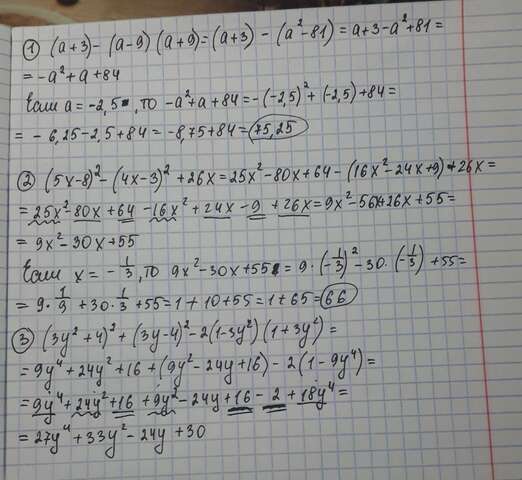 ① (a+3)-(a-9)(a+9)=(a+3)-(a²-81)=a+3-a²+81=
=-a²+a+84
Если a=-2,5, то -a²+a+84=-(-2,5)²+(-2,5)+84=
=-6,25-2,5+84=-8,75+84=75,25
② (5x-8)²-(4x-3)²+26x=25x²-80x+64-(16x²-24x+9)+26x=
=25x²-80x+64-16x²+24x-9+26x=9x²-56x+26x+55=
=9x²-30x+55
Если x=-1/3, то 9x²-30x+55=9·(-1/3)²-30·(-1/3)+55=
=9·1/9+30·1/3+55=1+10+55=1+65=66
③ (3y²+4)²+(3y-4)²-2(1-3y²)(1+3y²)=
=9y⁴+24y²+16+(9y²-24y+16)-2(1-9y⁴)=
=9y⁴+24y²+16+9y²-24y+16-2+18y⁴=
=27y⁴+33y²-24y+30